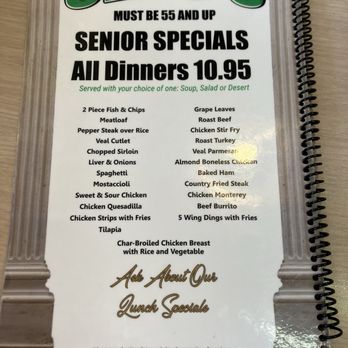 MUST BE 55 AND UP
SENIOR SPECIALS
All Dinners 10.95
Served with your choice of one: Soup, Salad or Desert
2 Piece Fish & Chips
Meatloaf
Pepper Steak over Rice
Veal Cutlet
Chopped Sirloin
Liver & Onions
Spaghetti
Mostaccioli
Sweet & Sour Chicken
Chicken Quesadilla
Chicken Strips with Fries
Tilapia
Grape Leaves
Roast Beef
Chicken Stir Fry
Roast Turkey
Veal Parmesan
Almond Boneless Chicken
Baked Ham
Country Fried Steak
Chicken Monterey
Beef Burrito
5 Wing Dings with Fries
Char-Broiled Chicken Breast
with Rice and Vegetable
Ask About Our
Lunch Specials